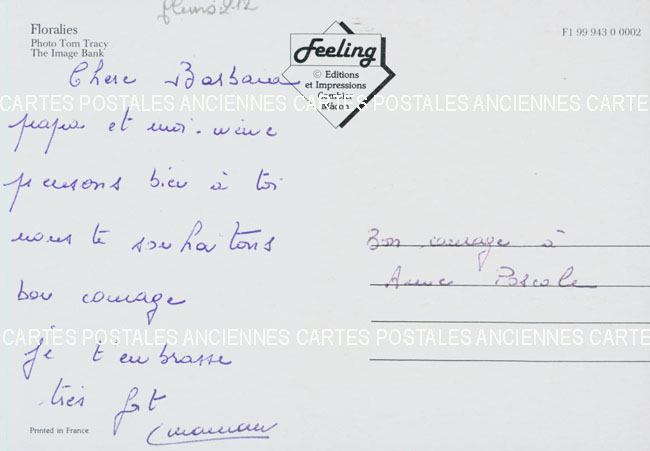 fleurs 212
Floralies
Photo Tom Tracy
The Image Bank
F1 99 943 0 0002
Feeling
© Editions
et Impressions
Combier
Mâcon
Chere Barbara
papa et moi-même
pensons bien à toi
nous te souhaitons
bon courage
je t'embrasse
très fort
maman
Bon courage à
Anne Pascale
CARTES POSTALES ANCIENNES CARTES POSTALES ANCIENNES CARTES
CARTES POSTALES ANCIENNES CARTES POSTALES ANCIENNES CARTES
Printed in France